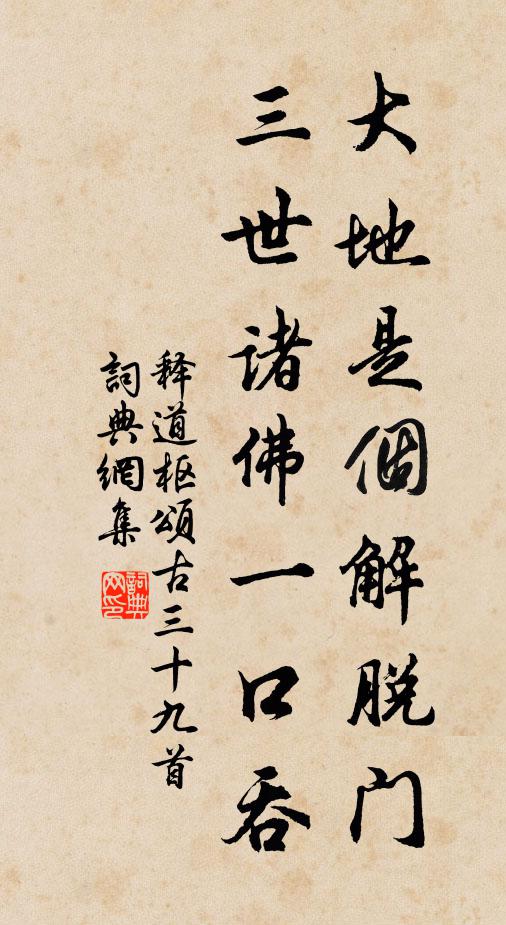 大地是個解脱门
三世诸佛一口吞
释道枢颂古三十九首
詞典網集
詞典网印